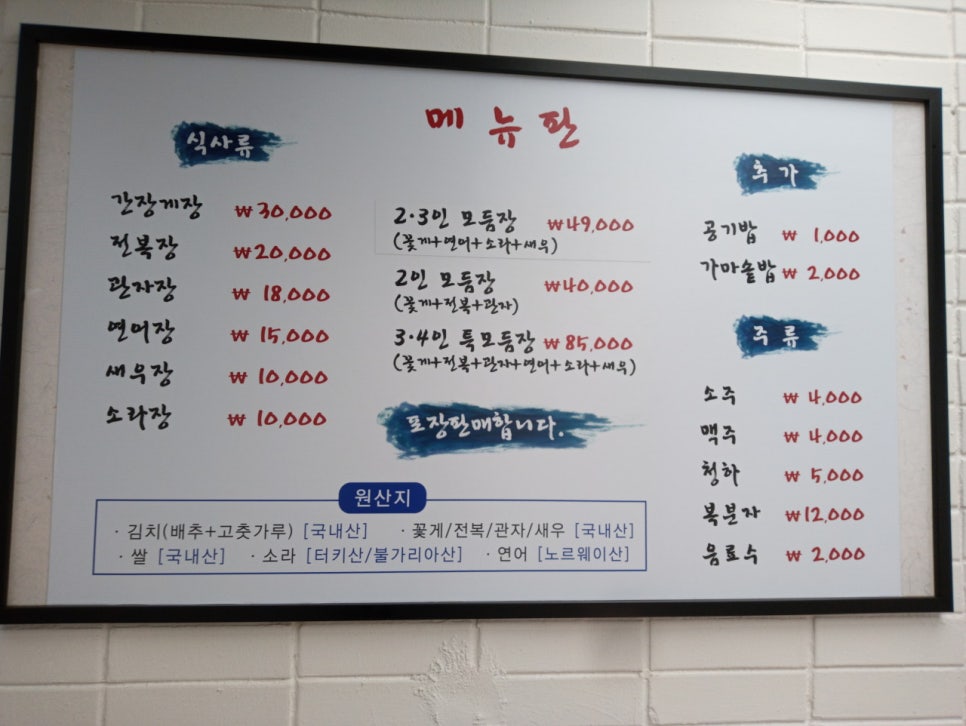 메뉴판
식사류
간장게장 ₩30,000
전복장 ₩20,000
관자장 ₩ 18,000
연어장 ₩ 15,000
새우장 ₩ 10,000
소라장 ₩ 10,000
2·3인 모듬장 ₩49,000
(꽃게+연어+소라+새우)
2인 모듬장 ₩40,000
(꽃게+전복+관자)
3·4인 특모듬장 ₩85,000
(꽃게+전복+관자+연어+소라+새우)
포장판매합니다.
추가
공기밥 ₩ 1,000
가마솥밥 ₩ 2,000
주류
소주 ₩ 4,000
맥주 ₩ 4,000
청하 ₩ 5,000
복분자 ₩12,000
음료수 ₩ 2,000
원산지
· 김치(배추+고춧가루) [국내산] · 꽃게/전복/관자/새우 [국내산]
· 쌀 [국내산] · 소라 [터키산/불가리아산] · 연어 [노르웨이산]